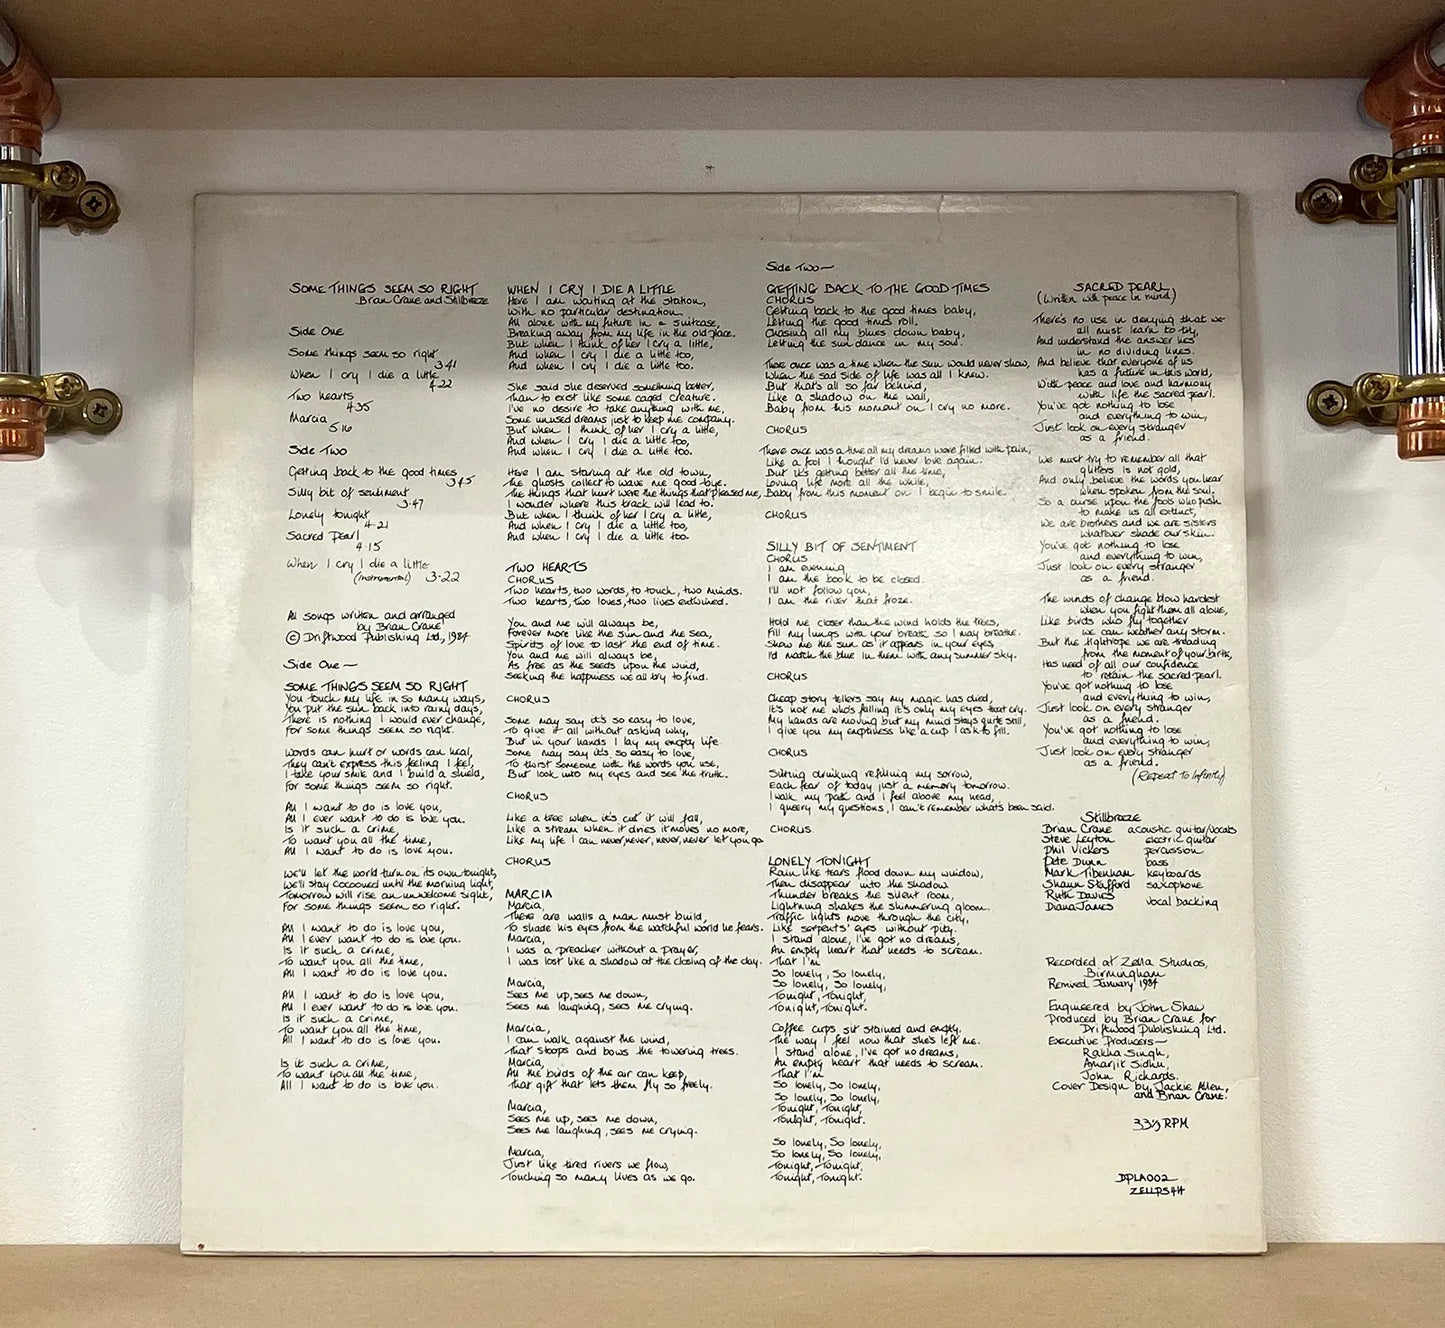 SOME THINGS SEEM SO RIGHT
Brian Crane and Stillbreeze
Side One
Some things seem so right
3·41
When I cry I die a little
4·22
Two hearts
4·35
Marcia
5·16
Side Two
Getting back to the good times
3·45
Silly bit of sentiment
3·47
Lonely tonight
4·21
Sacred Pearl
4·15
When I cry I die a little
(instrumental) 3·22
All songs written and arranged
by Brian Crane
© Driftwood Publishing Ltd, 1984
Side One —
SOME THINGS SEEM SO RIGHT
You touch my life in so many ways,
You put the sun back into rainy days,
There is nothing I would ever change,
For some things seem so right.
Words can hurt or words can heal,
They can't express this feeling I feel,
I take your smile and I build a shield,
For some things seem so right.
All I want to do is love you,
All I ever want to do is love you.
Is it such a crime,
To want you all the time,
All I want to do is love you.
We'll let the world turn on its own tonight,
We'll stay cocooned until the morning light,
Tomorrow will rise an unwelcome sight,
For some things seem so right.
All I want to do is love you,
All I ever want to do is love you.
Is it such a crime,
To want you all the time,
All I want to do is love you.
All I want to do is love you,
All I ever want to do is love you.
Is it such a crime,
To want you all the time,
All I want to do is love you.
Is it such a crime,
To want you all the time,
All I want to do is love you.
WHEN I CRY I DIE A LITTLE
Here I am waiting at the station,
With no particular destination.
All alone with my future in a suitcase,
Breaking away from my life in the old place.
But when I think of her I cry a little,
And when I cry I die a little too,
And when I cry I die a little too.
She said she deserved something better,
Than to exist like some caged creature.
I've no desire to take anything with me,
Some unused dreams just to keep me company.
But when I think of her I cry a little,
And when I cry I die a little too,
And when I cry I die a little too.
Here I am staring at the old town,
The ghosts collect to wave me good-bye.
The things that hurt were the things that pleased me,
I wonder where this track will lead to.
But when I think of her I cry a little,
And when I cry I die a little too,
And when I cry I die a little too.
TWO HEARTS
CHORUS
Two hearts, two words, to touch, two minds.
Two hearts, two loves, two lives entwined.
You and me will always be,
Forever more like the sun and the sea,
Spirits of love to last the end of time.
You and me will always be,
As free as the seeds upon the wind,
Seeking the happiness we all try to find.
CHORUS
Some may say it's so easy to love,
To give it all without asking why,
But in your hands I lay my empty life.
Some may say it's so easy to love,
To twist someone with the words you use,
But look into my eyes and see the truth.
CHORUS
Like a tree when it's cut it will fall,
Like a stream when it dries it moves no more,
Like my life I can never, never, never, never let you go.
CHORUS
MARCIA
Marcia,
There are walls a man must build,
To shade his eyes from the watchful world he fears.
Marcia,
I was a preacher without a prayer,
I was lost like a shadow at the closing of the day.
Marcia,
Sees me up, sees me down,
Sees me laughing, sees me crying.
Marcia,
I can walk against the wind,
That stoops and bows the towering trees.
Marcia,
All the birds of the air can keep,
That gift that lets them fly so freely.
Marcia,
Sees me up, sees me down,
Sees me laughing, sees me crying.
Marcia,
Just like tired rivers we flow,
Touching so many lives as we go.
Side Two —
GETTING BACK TO THE GOOD TIMES
CHORUS
Getting back to the good times baby,
Letting the good times roll.
Chasing all my blues down baby,
Letting the sun dance in my soul.
There once was a time when the sun would never show,
When the sad side of life was all I knew.
But that's all so far behind,
Like a shadow on the wall,
Baby from this moment on I cry no more.
CHORUS
There once was a time all my dreams were filled with pain,
Like a fool I thought I'd never love again.
But it's getting better all the time,
Loving life more all the while,
Baby from this moment on I begin to smile.
CHORUS
SILLY BIT OF SENTIMENT
CHORUS
I am evening
I am the book to be closed.
I'll not follow you,
I am the river that froze.
Hold me closer than the wind holds the trees,
Fill my lungs with your breath so I may breathe.
Show me the sun as it appears in your eyes,
I'd match the blue in them with any summer sky.
CHORUS
Cheap story tellers say my magic has died,
It's not me who's falling it's only my eyes that cry.
My hands are moving but my mind stays quite still,
I give you my emptiness like a cup I ask to fill.
CHORUS
Sitting drinking refilling my sorrow,
Each fear of today just a memory tomorrow.
I walk my path and I feel above my head,
I query my questions, I can't remember what's been said.
CHORUS.
LONELY TONIGHT
Rain like tears flood down my window,
Then disappear into the shadow.
Thunder breaks the silent room,
Lightning shakes the shimmering gloom.
Traffic lights move through the city,
Like serpents' eyes without pity.
I stand alone, I've got no dreams,
An empty heart that needs to scream.
That I'm
So lonely, So lonely,
So lonely, So lonely,
Tonight, Tonight,
Tonight, Tonight.
Coffee cups sit stained and empty.
The way I feel now that she's left me.
I stand alone, I've got no dreams,
An empty heart that needs to scream.
That I'm
So lonely, So lonely,
So lonely, So lonely,
Tonight, Tonight,
Tonight, Tonight.
So lonely, So lonely,
So lonely, So lonely,
Tonight, Tonight,
Tonight, Tonight.
SACRED PEARL
(Written with peace in mind)
There's no use in denying that we
all must learn to try,
And understand the answer lies
in no dividing lines.
And believe that everyone of us
has a future in this world,
With peace and love and harmony
with life the sacred pearl.
You've got nothing to lose
and everything to win,
Just look on every stranger
as a friend.
We must try to remember all that
glitters is not gold,
And only believe the words you hear
when spoken from the soul.
So a curse upon the fools who push
to make us all extinct,
We are brothers and we are sisters
whatever shade our skin.
You've got nothing to lose
and everything to win,
Just look on every stranger
as a friend.
The winds of change blow hardest
when you fight them all alone,
Like birds who fly together
we can weather any storm.
But the tightrope we are treading
from the moment of your birth,
Has need of all our confidence
to retain the sacred pearl.
You've got nothing to lose
and everything to win,
Just look on every stranger
as a friend.
You've got nothing to lose
and everything to win,
Just look on every stranger
as a friend.
(Repeat To Infinity)
Stillbreeze
Brian Crane acoustic guitar/vocals
Steve Leyton electric guitar
Phil Vickers percussion
Pete Dunn bass
Mark Tibenham keyboards
Shaun Stafford saxophone
Ruth Davies
Diana James vocal backing
Recorded at Zella Studios,
Birmingham
Remixed January 1984
Engineered by John Shaw
Produced by Brian Crane for
Driftwood Publishing Ltd.
Executive Producers —
Rakha Singh,
Amarjit Sidhu,
John Richards.
Cover Design by Jackie Allen,
and Brian Crane.
33⅓ RPM
DPLA002
ZELLPS4H